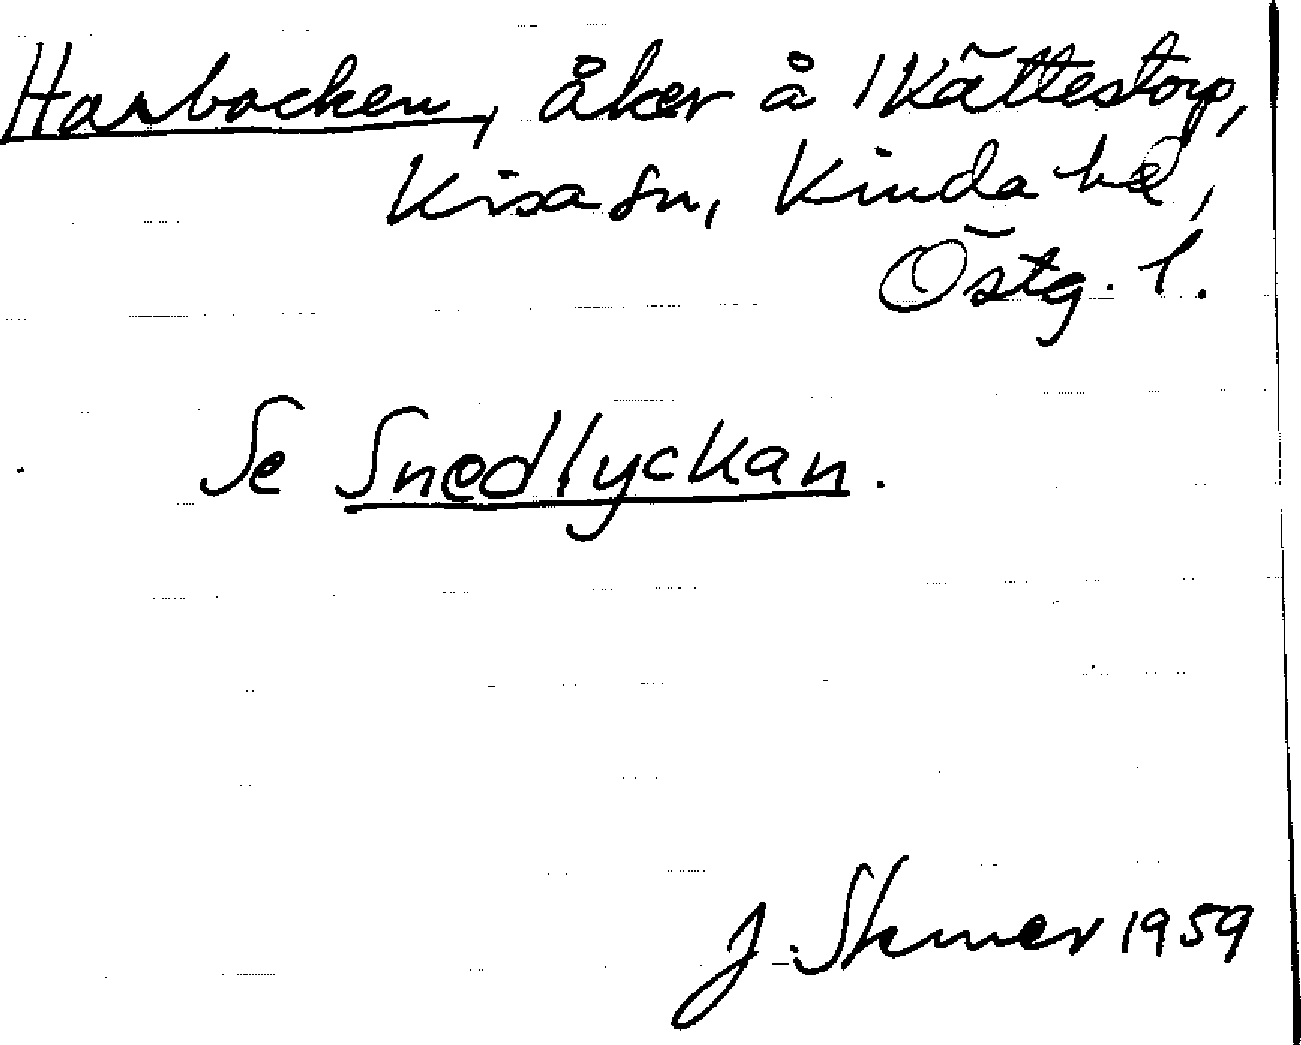 Harbacken, åker å 1 Kättestorp,
Kisa sn, Kinda hd,
Östg. l.
Se Snedlyckan.
J. 1959